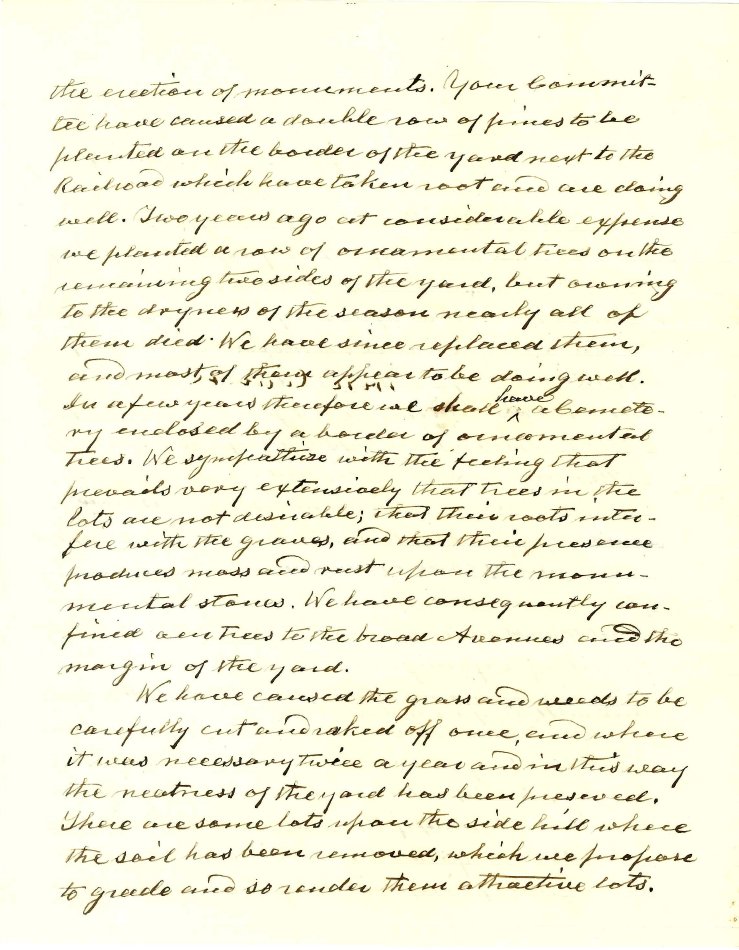 the erection of monuments. Your Commit-
tee have caused a double row of pines to be
planted on the border of the yard next to the
Railroad which have taken root and are doing
well. Two years ago at considerable expense
we planted a row of ornamental trees on the
remaining two sides of the yard, but owning
to the dryness of the season nearly all of
them died. We have since replaced them,
and most of them appear to be doing well.
In a few years therefore we shall have a Cemete-
ry enclosed by a border of ornamental
trees. We sympathise with the feeling that
prevails very extensively that trees in the
lots are not desirable; that their roots inter-
fere with the graves, and that their presence
produces moss and rust upon the monu-
mental stones. We have consequently con-
fined our trees to the broad Avenues and the
margin of the yard.
We have caused the grass and weeds to be
carefully cut and raked off once, and where
it was necessary twice a year and in this way
the neatness of the yard has been preserved.
There are some lots upon the side hill where
the soil has been removed, which we propose
to grade and so render them attractive lots.